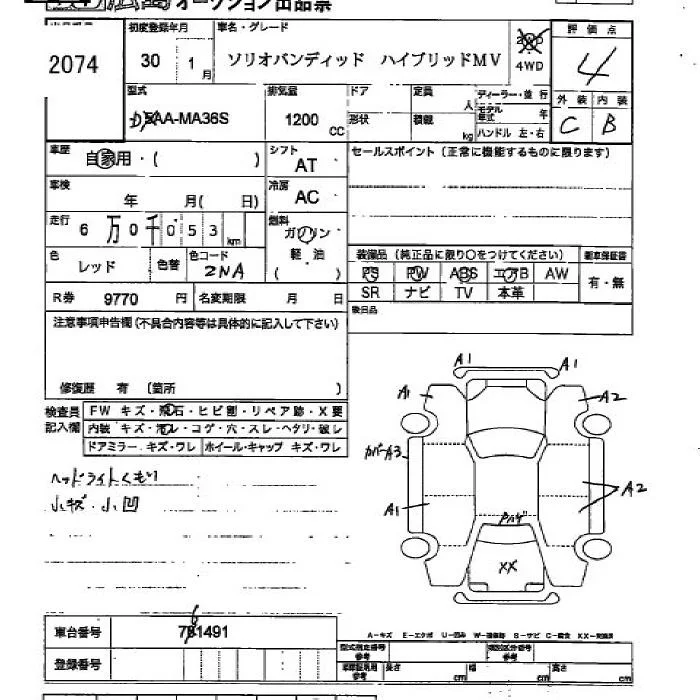 オークション出品票
2074
初度登録年月
30 1月
車名・グレード
ソリオバンディッド ハイブリッドMV
4WD
評価点
4
外装 内装
C B
型式
DAA-MA36S
排気量
1200 CC
ドア
形状
定員 人
積載 kg
ディーラー・並行
モデル年式 年
ハンドル 左・右
車歴
自家用・( )
シフト
AT
セールスポイント(正常に機能するものに限ります)
車検
年 月( 日)
冷房
AC
走行
6万0千053km
燃料
ガソリン
軽・油
( )
色
レッド
色替
色コード
2NA
装備品(純正品に限り○をつけてください)
PS PW ABS エアB AW
SR ナビ TV 本革
新車保証書
有・無
R券 9770円
名変期限 月 日
後日品
注意事項申告欄(不具合内容等は具体的に記入して下さい)
修復歴 有 (箇所 )
検査員記入欄
FW キズ・飛石・ヒビ割・リペア跡・X要
内装 キズ・汚レ・コゲ・穴・スレ・ヘタリ・破レ
ドアミラー キズ・ワレ ホイール・キャップ キズ・ワレ
ヘッドライトくもり
小キズ・小凹
A1 A1
A1 A2
カバーA3
A1 A2
Pハゲ
XX
車台番号
761491
登録番号
A-キズ E-エクボ U-凹み W-補修跡 S-サビ C-腐食 XX-交換済
型式指定番号
参考
類別区分番号
参考
長さ cm
幅 cm
高さ cm